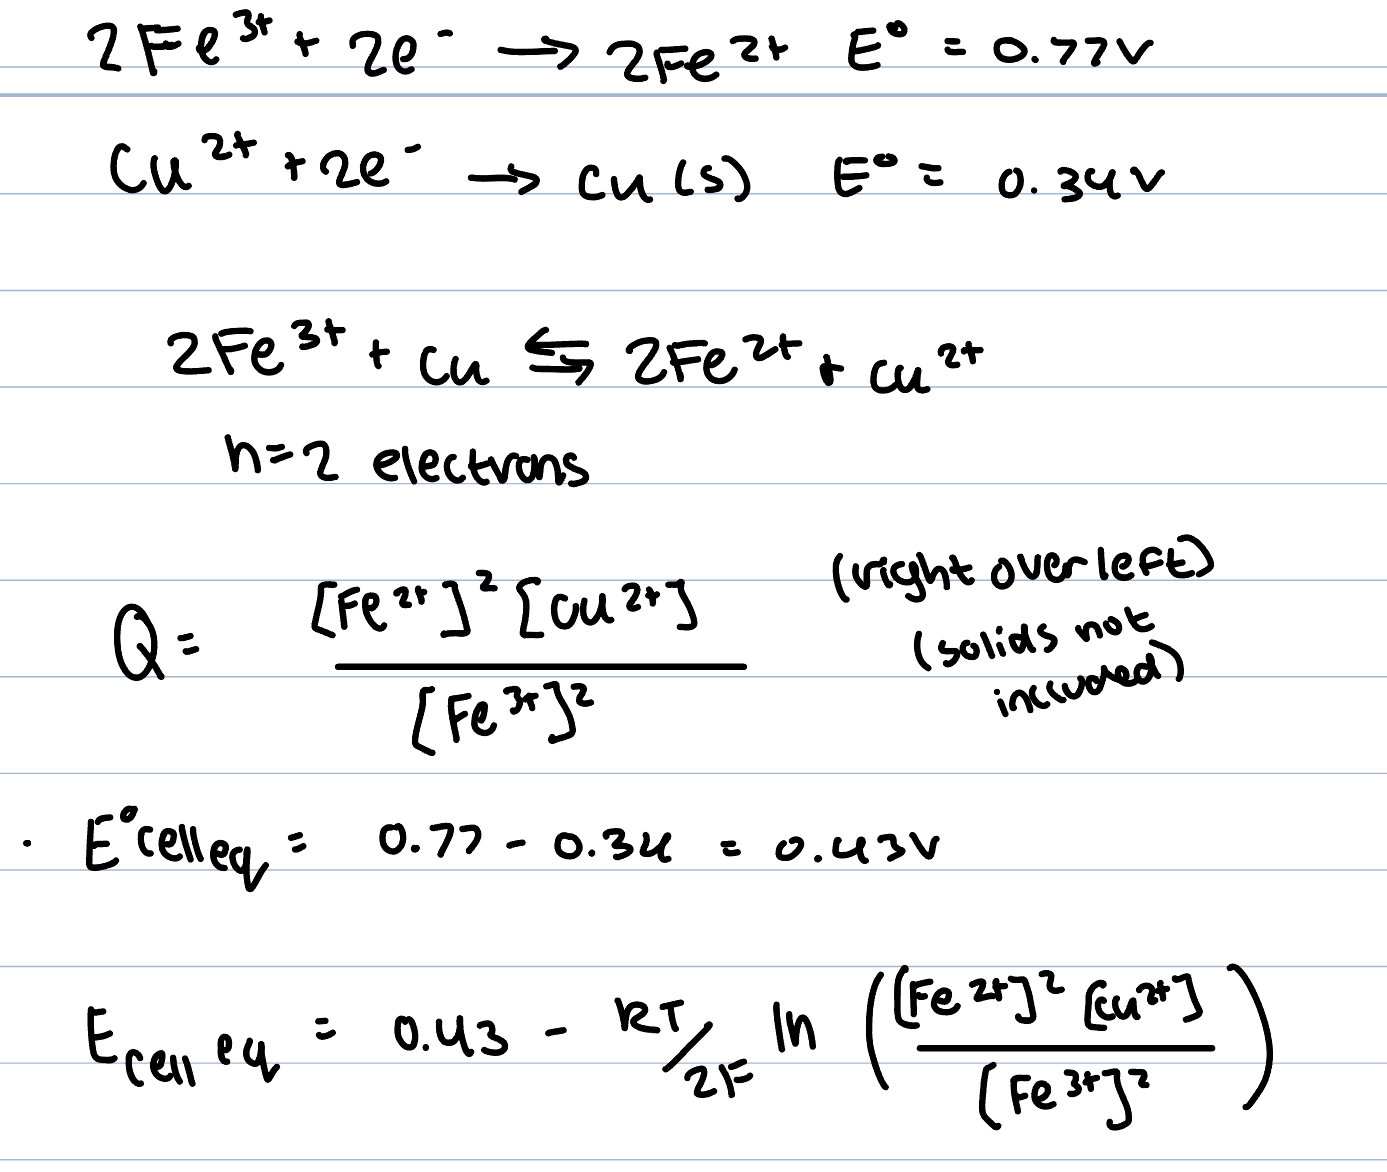 2Fe³⁺ + 2e⁻ → 2Fe²⁺ E° = 0.77V
Cu²⁺ + 2e⁻ → Cu (s) E° = 0.34V
2Fe³⁺ + Cu ⇆ 2Fe²⁺ + Cu²⁺
n=2 electrons
Q = [Fe²⁺]² [Cu²⁺] / [Fe³⁺]²
(right over left)
(solids not
included)
· E°cell eq = 0.77 - 0.34 = 0.43V
E cell eq = 0.43 - RT/2F ln ([Fe²⁺]² [Cu²⁺] / [Fe³⁺]²)